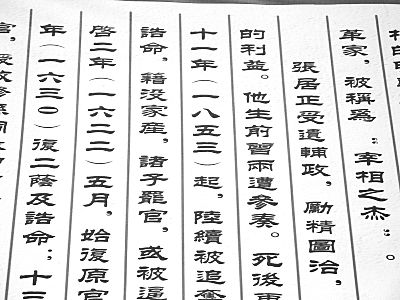 革家，被稱爲“宰相之杰”。
張居正受遺輔政，勵精圖治，
的利益。他生前曾兩遭參奏。死後更
十一年（一八五三）起，陸續被追奪
誥命，籍没家産，諸子罷官，或被逼
啓二年（一六二二）五月，始復原官
年（一六三〇）復二蔭及誥命；十三
官，